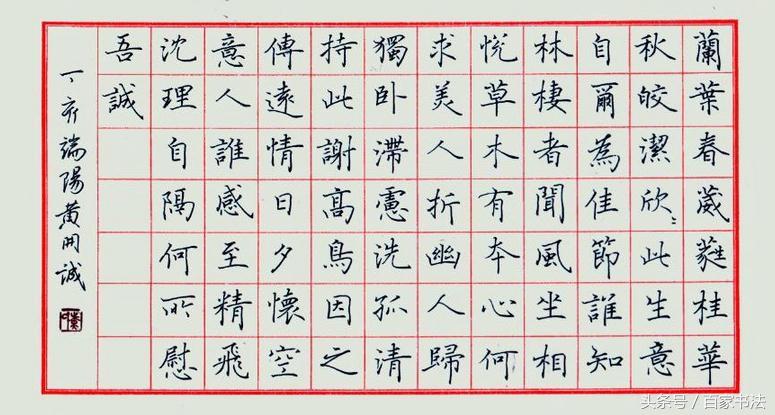 蘭葉春葳蕤桂華
秋皎潔欣〻此生意
自爾為佳節誰知
林棲者聞風坐相
悅草木有本心何
求美人折幽人歸
獨卧滯慮洗孤清
持此謝高鳥因之
傳遠情日夕懷空
意人誰感至精飛
沈理自隔何所慰
吾誠
丁亥端陽黃開誠
头条号／百家书法